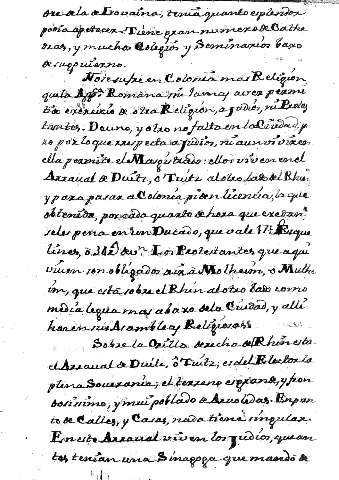 bre de la de Lovaina, tenia quanto esplendor
podia apetecer. Tiene gran numero de Cathe
dras, y muchos Colegios y Seminarios baxo
de su govierno.
No se sufre en Colonia mas Religion
que la Appª Romana, ni jamas aver permi
tido exercicio de otra Religion, a judios, ni Protes
tantes. De uno, y otro no falta en la Ciudad, pe
ro por lo que respecta a judios, ni aun vivir en
ella permite el Magistrado: ellos viven en el
Arraval de Duitz, ô Tuitz al otro lado del Rhin
y para pasar a Colonia piden licencia, la que
obtenida, por cada quarto de hora que
se les pena en un Ducado, que vale
lines, ô Los Protestantes que aqui
viven son obligados a ir â Molheim, o Mulh-
eim, que está sobre el Rhin al otro lado como
media legua mas abaxo de la Ciudad, y alli
hacen sus Asambleas Religiosas.
Sobre la Orilla derecha del Rhin esta
el Arraval de Duitz, ô Tuitz; es del Elector la
plena Soverania; el terreno es grande, y fron
dosisimo, y mui poblado de Arvoledas. En pun
to de Calles, y Casas, nada tiene singular.
En este Arraval viven los judios, que an
tes tenian una Sinagoga que mandó de